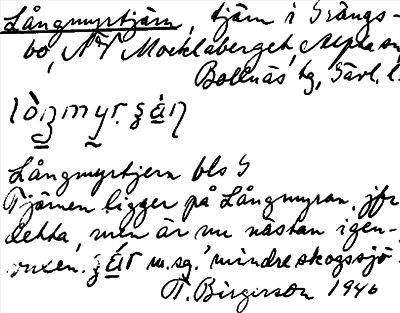 Långmyrtjärn, tjärn i Grängs-
bo, NV Mocklaberget, Alfta sn,
Bollnäs tg, Gävl. l.
Långmyrtjern bls G
Tjärnen ligger på Långmyran, jfr
detta, men är nu nästan igen-
vuxen. m.sg. 'mindre skogssjö'
T. Birgerson 1940